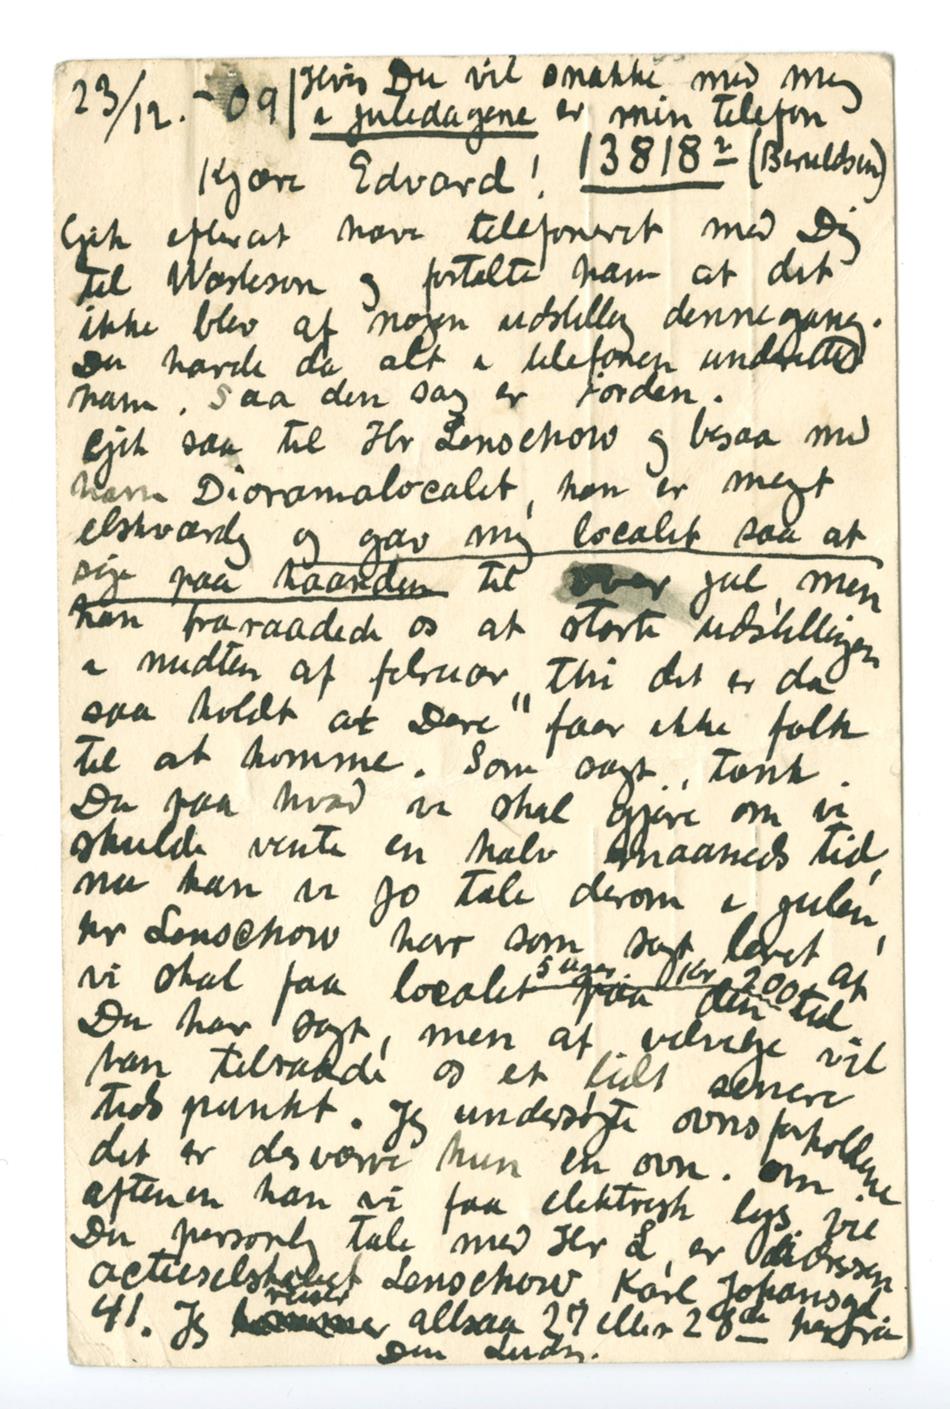 23/12. - 09 | Hvis Du vil snakke med meg
i juledagene er min telefon
13818² (Beruldsen)
Kjære Edvard!
Gik efterat have telefoneret med Dig
til Warleson og fortalte ham at det
ikke blev af nogen udstilling dennegang.
Du havde da alt i telefonen underrettet
ham. Saa den sag er iorden.
Gik saa til Hr Lenschow og besaa med
ham Dioramalocalet, han er meget
elskværdig og gav mig localet saa at
sige paa haanden til over jul, men
han fraraadede os at starte udstillingen
i midten af februar, "thi det er da
saa koldt at Dere" faar ikke folk
til at komme. Som sagt, tænk
Du paa hvad vi skal gjøre om vi
skulde vente en halv maaneds tid,
nu kan vi jo tale derom i julen,
Hr Lenschow har som sagt lovet at
vi skal faa localet 5 uger Kr 200 paa den tid
Du har sagt, men at velvilje vil
han tilraade os et lidt senere
tidspunkt. Jeg undersøgte ovnsforholdene
det er desværre kun en ovn. Om
aftenen kan vi faa elektrisk lys. Vil
Du personlig tale med Hr L, er adressen
actieselskabet Lenschow. Karl Johansgd
41. Jeg reiser altsaa 27 eller 28de herfra
Din Ludv.